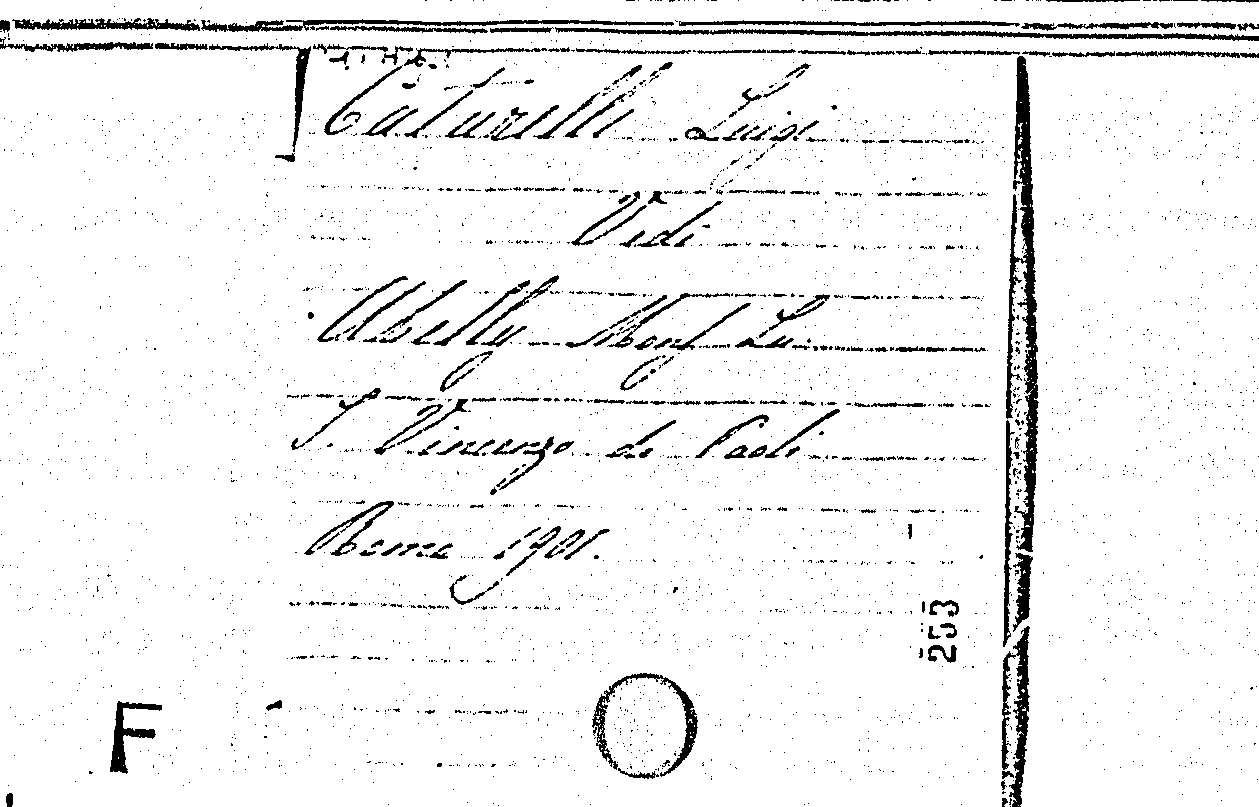 Caturelli Luigi
Vedi
Abelly Monsʳ Lu.
S. Vincenzo de Paoli
Roma 1901.
253
F